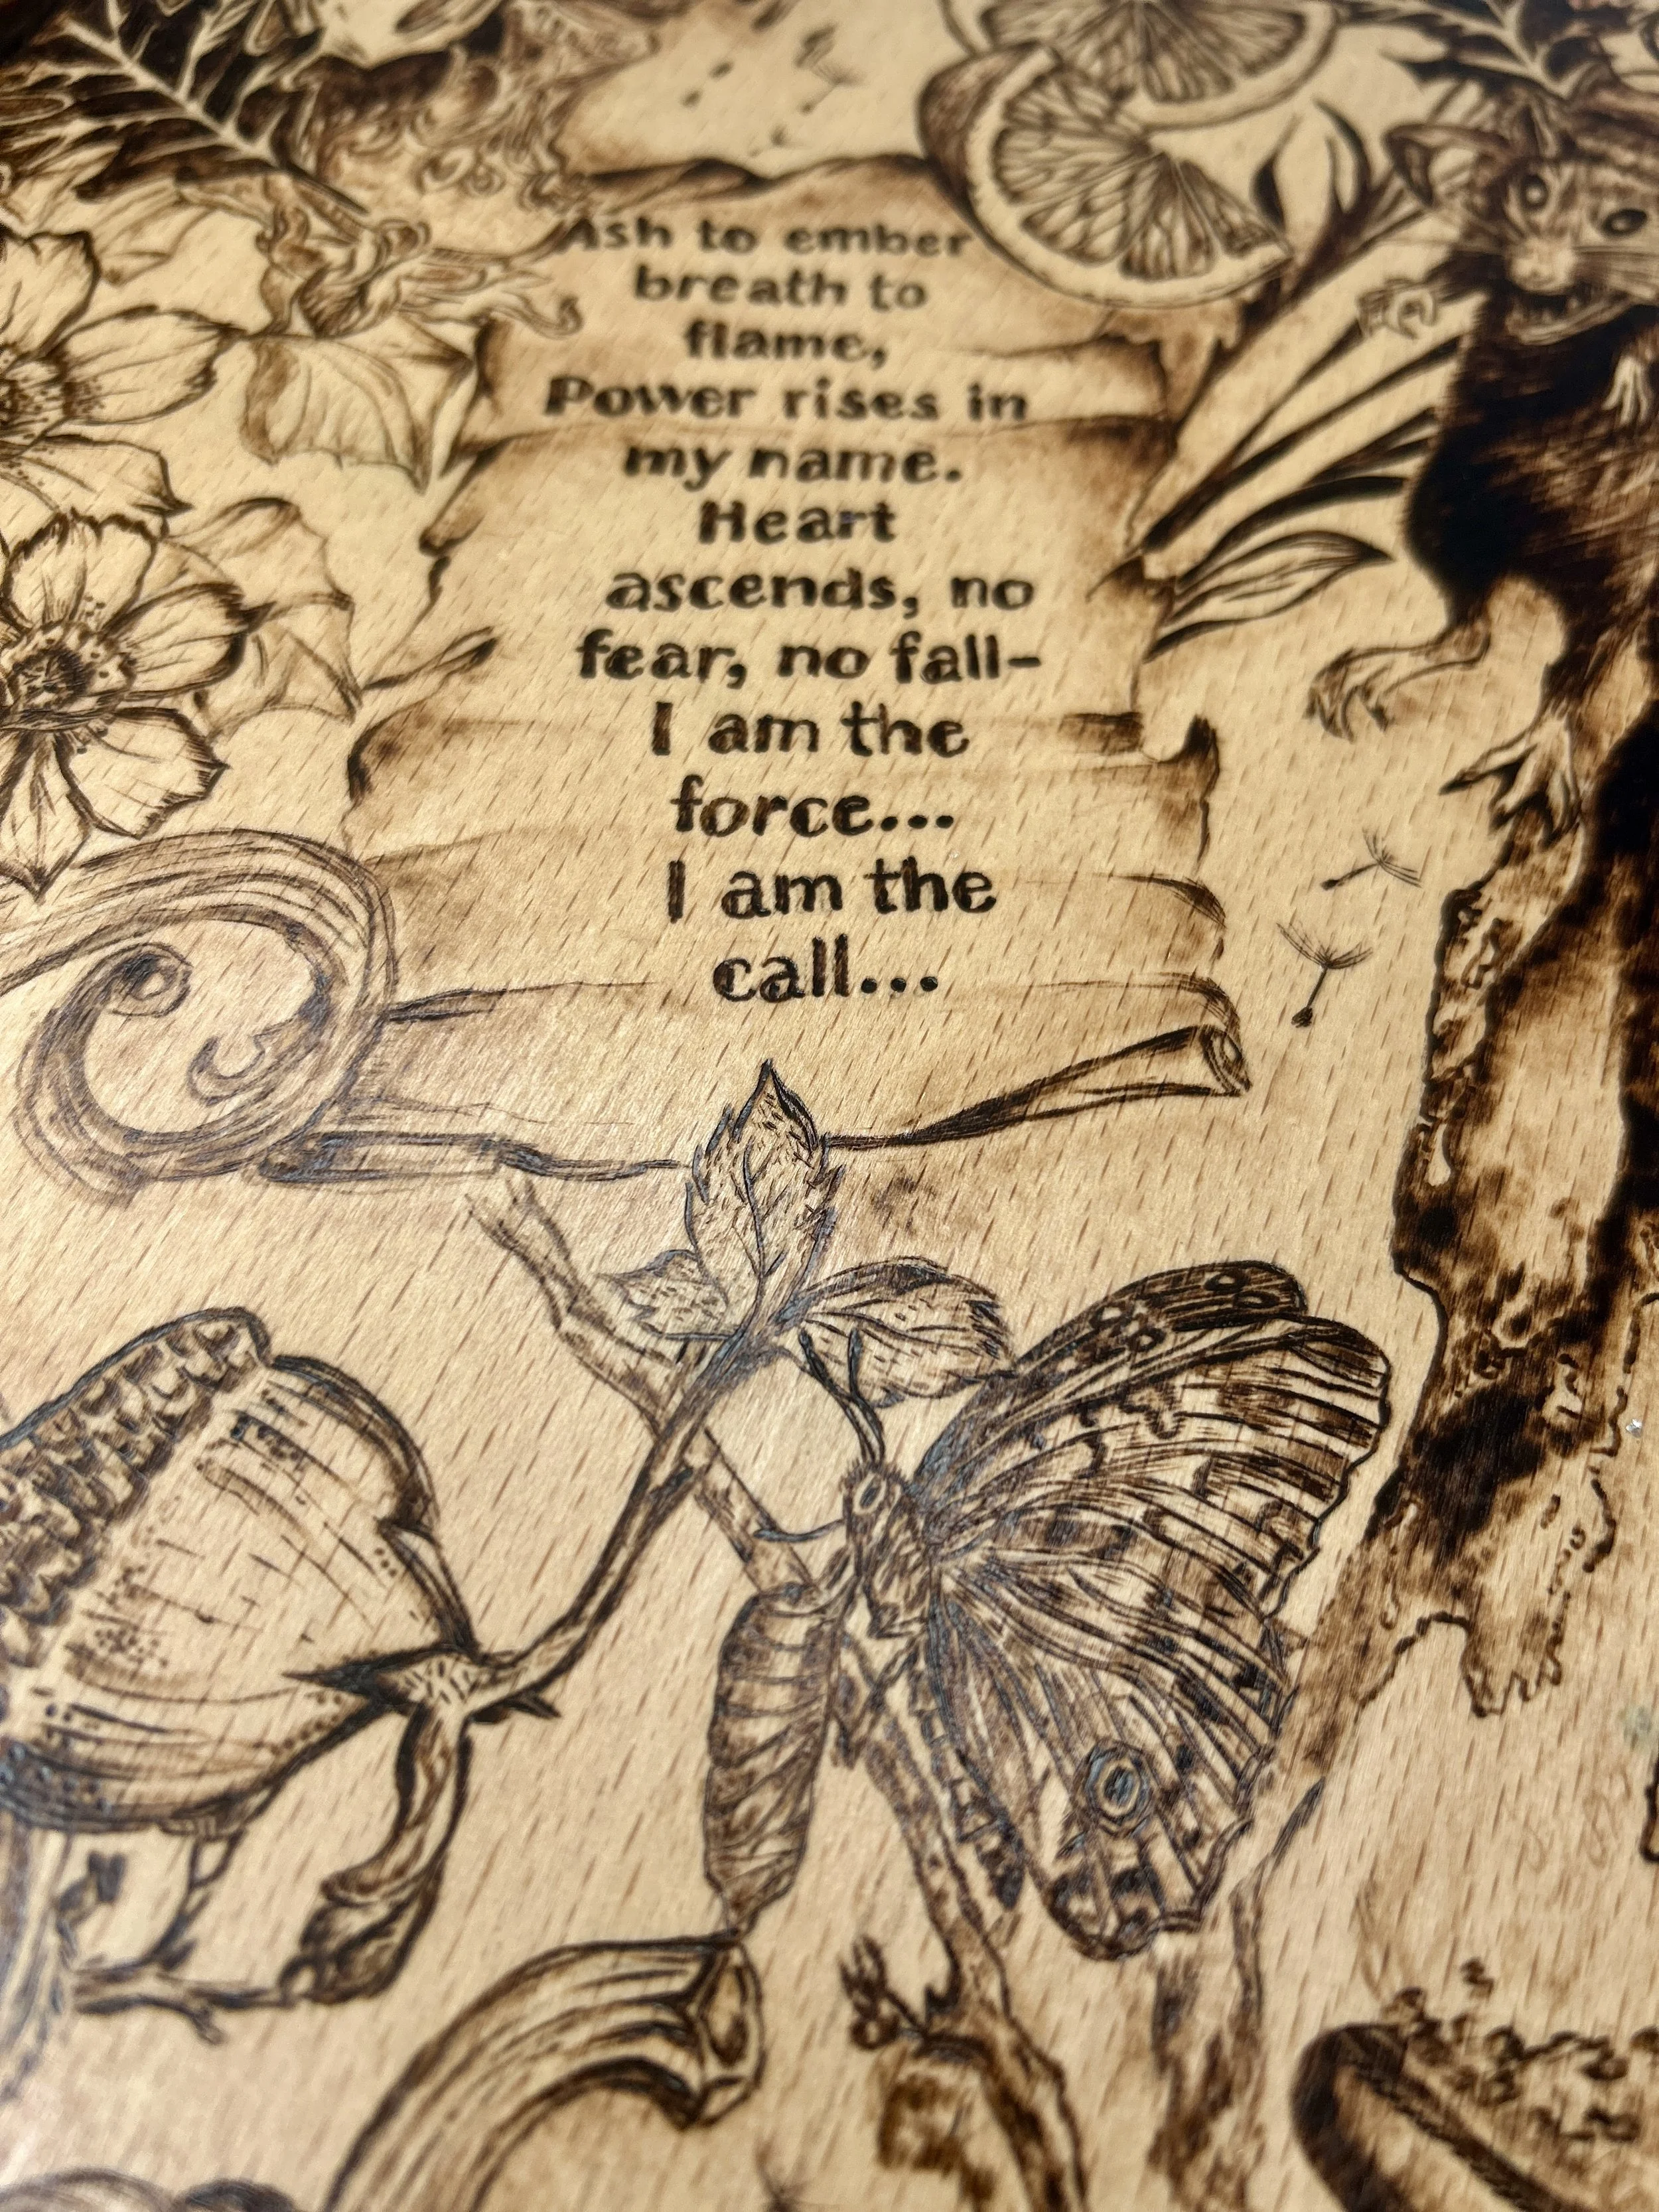 Ash to ember
breath to
flame,
Power rises in
my name.
Heart
ascends, no
fear, no fall-
I am the
force...
I am the
call...